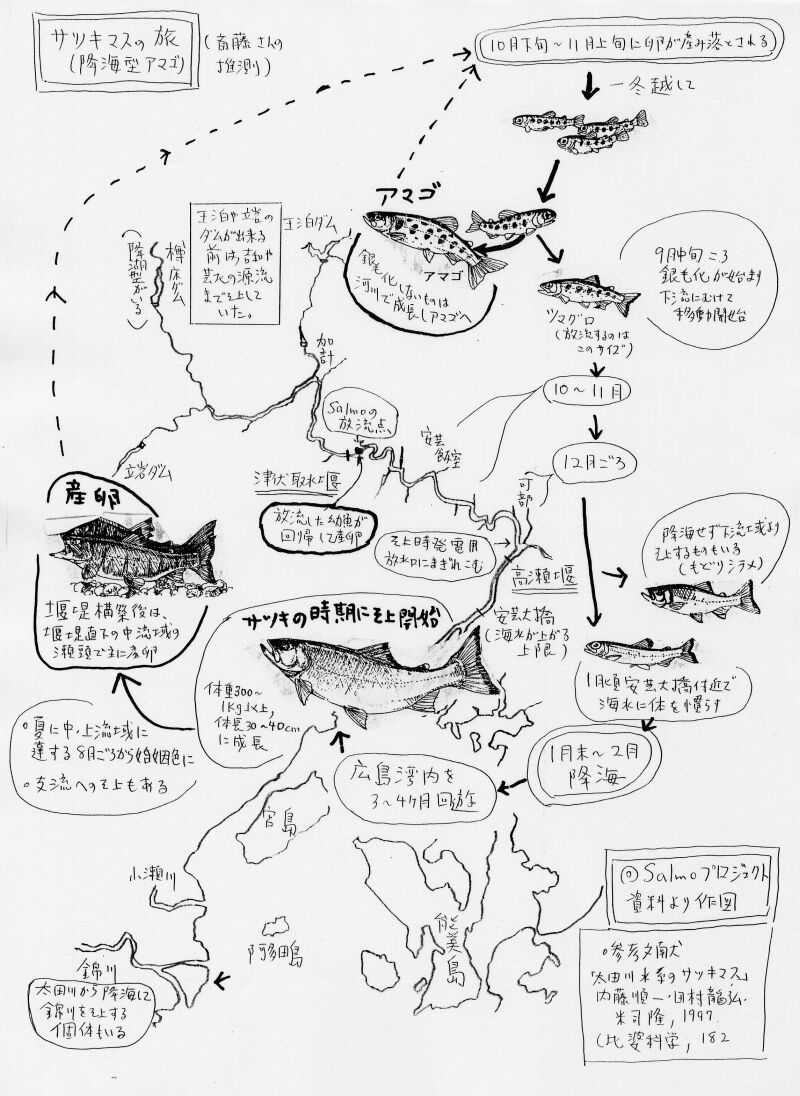 サツキマスの旅
(降海型アマゴ)
(斎藤さんの
推測)
(10月下旬～11月上旬に卵が産み落とされる)
一冬越して
アマゴ
王泊や立岩の
ダムが出来る
前は、吉和や
芸北の源流
までそ上して
いた。
王泊ダム
樽床ダム
(降湖型がいる)
アマゴ
銀毛化しないものは
河川で成長しアマゴへ
9月中旬ころ
銀毛化が始まり
下流にむけて
移動開始
ツマグロ
(放流するのは
このサイズ)
加計
10～11月
Salmoの
放流点
安芸
飯室
12月ごろ
立岩ダム
津伏取水堰
可部
産卵
放流した幼魚が
回帰して産卵
そ上時発電用
放水口にまぎれこむ
高瀬堰
降海せず下流域より
そ上するものもいる
(もどりシラメ)
堰堤構築後は、
堰堤直下の中流域の
瀬頭でおもに産卵
サツキの時期にそ上開始
安芸大橋
(海水が上がる
上限)
体重300～
1kg以上,
体長30～40cm
に成長
1月頃安芸大橋付近で
海水に体を慣らす
・夏に中・上流域に
達する8月ごろから婚姻色に
・支流へのそ上もある
広島湾内を
3～4ヶ月回遊
1月末～2月
降海
宮島
小瀬川
阿多田島
能美島
◎Salmoプロジェクト
資料より作図
錦川
太田川から降海して
錦川をそ上する
個体もいる
・参考文献
「太田川水系のサツキマス」
内藤順一・田村龍弘・
米司隆, 1997.
(比婆科学, 182